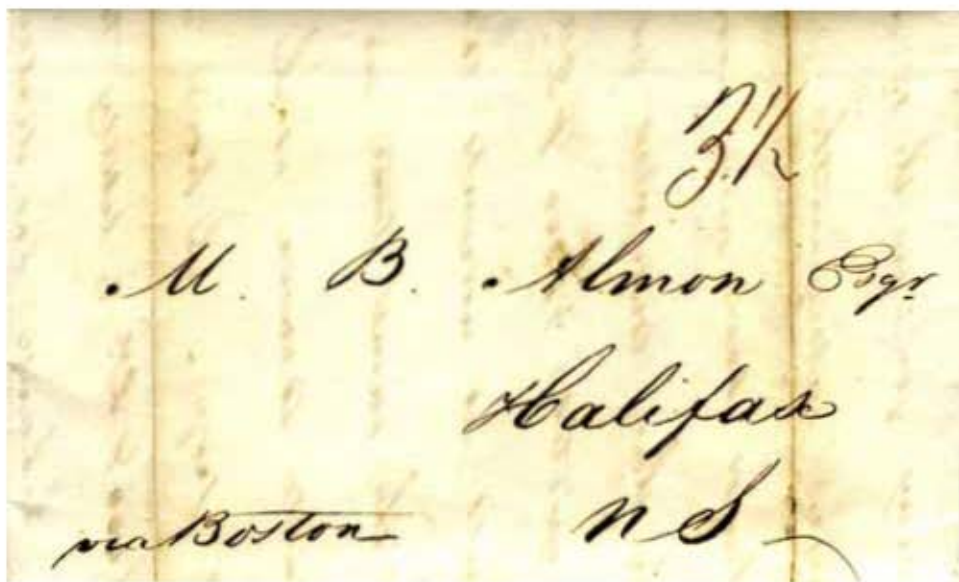 3.½
M. B. Almon Esqr
Halifax
N S
via Boston